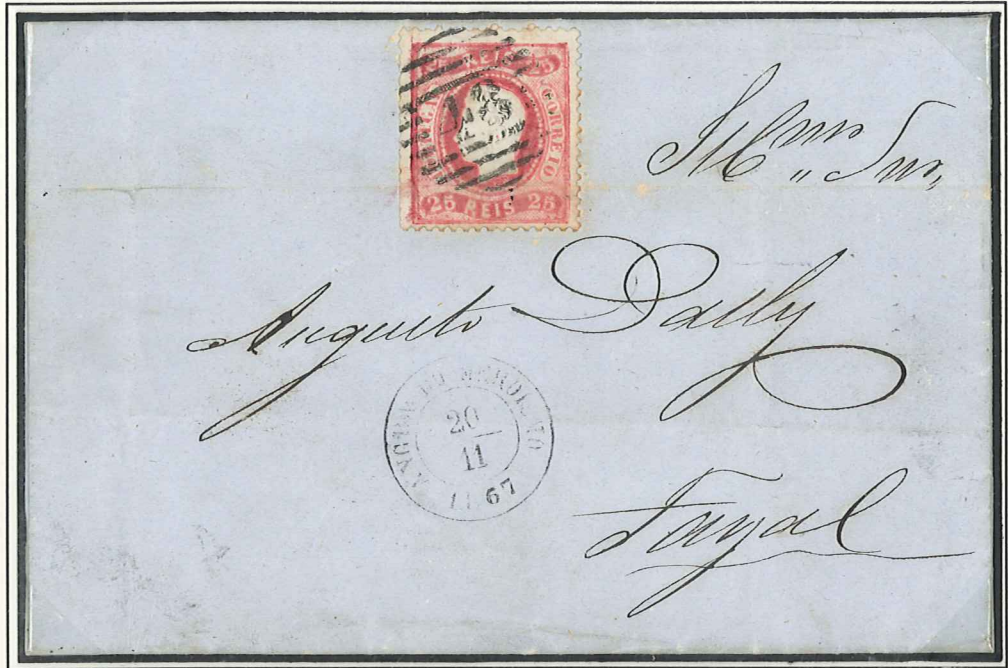 25 REIS 25
CORREIO
25 REIS 25
Ill.mo Snr.
Augusto Dally
ANGRA DO HEROISMO
20
11
1867
Fayal